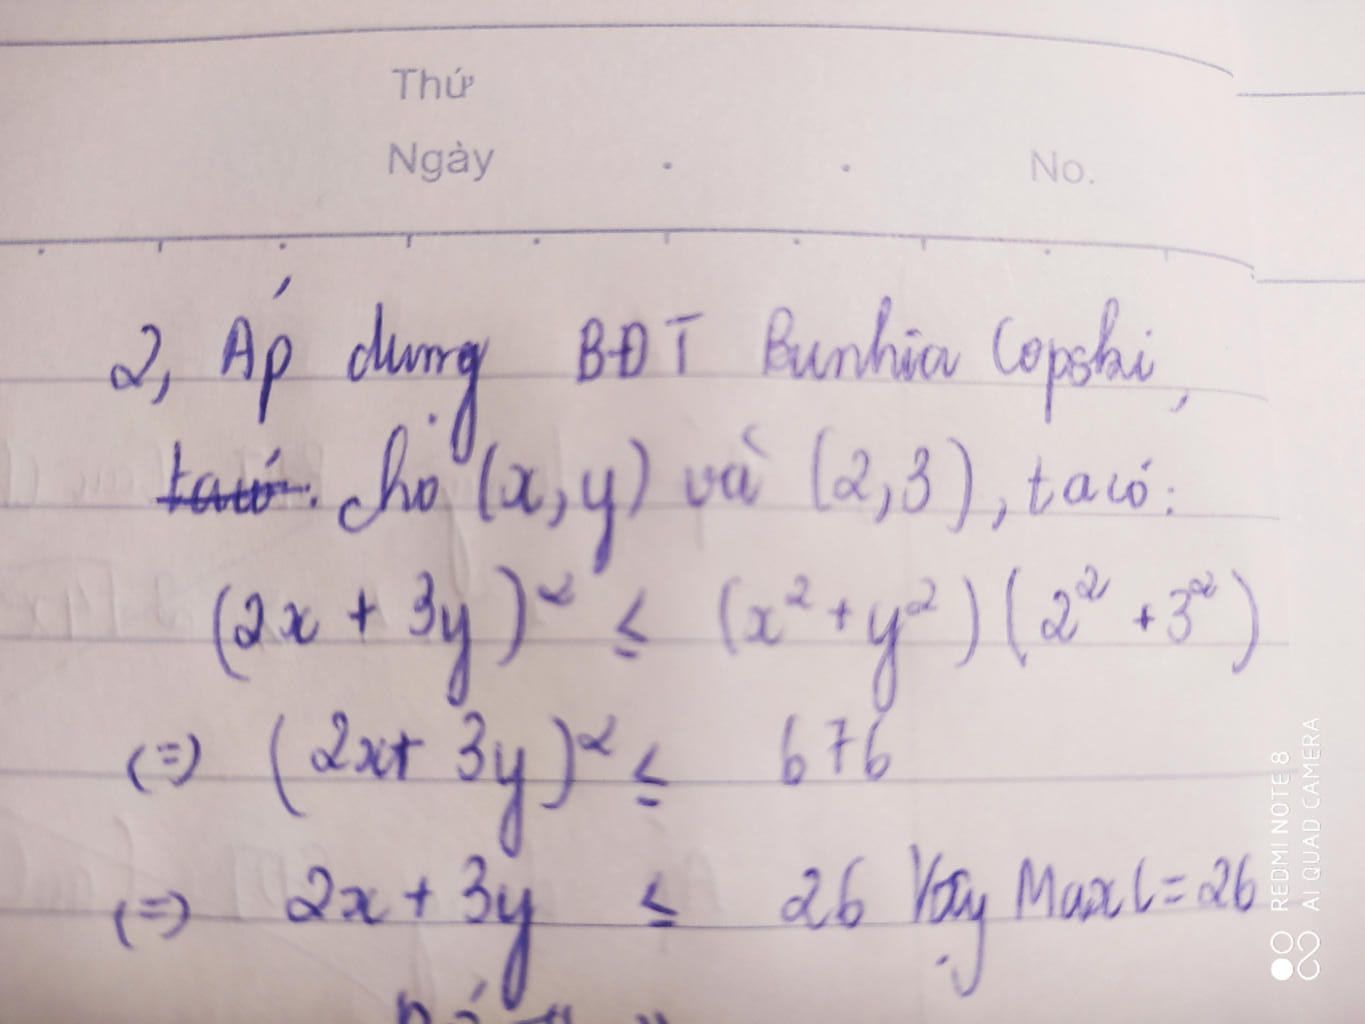 Thứ
Ngày . . No.
2, Áp dụng BĐT Bunhia Copski,
cho (x, y) và (2, 3), ta có:
(2x + 3y)² ≤ (x² + y²)(2² + 3²)
(=) (2x + 3y)² ≤ 676
(=) 2x + 3y ≤ 26 Vậy Max L = 26
REDMI NOTE 8
AI QUAD CAMERA